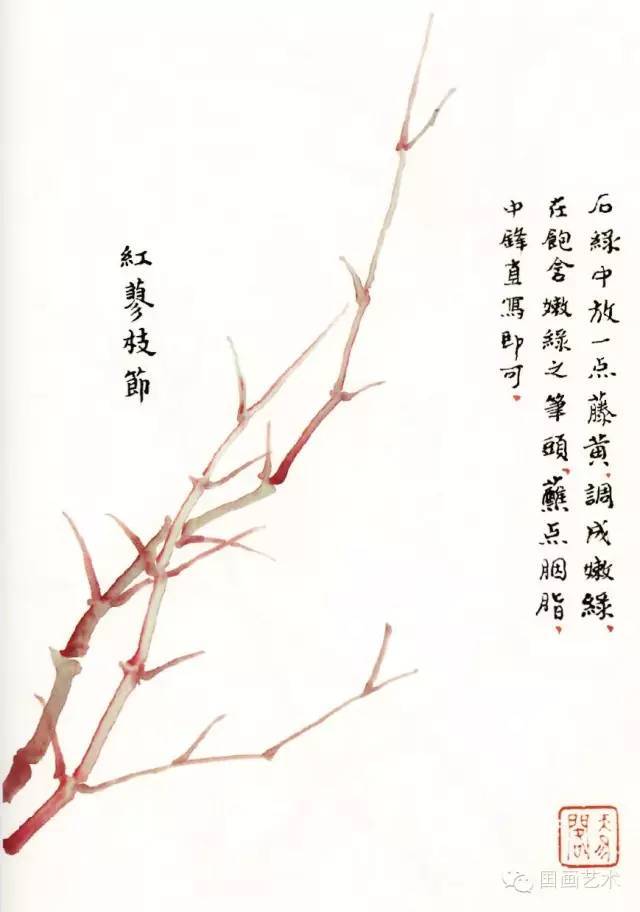 石綠中放一点藤黃、調成嫩綠、
在飽含嫩綠之筆頭、蘸点胭脂、
中鋒直寫即可、
紅蓼枝節
国画艺术